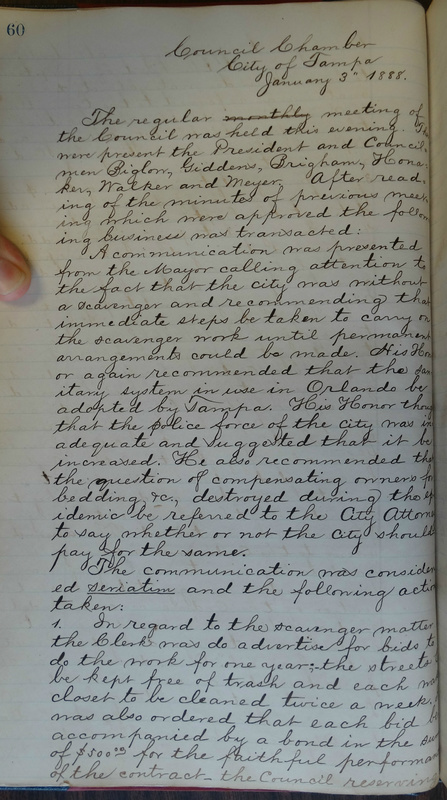 60
Council Chamber
City of Tampa
January 3" 1888.
The regular monthly meeting of
the Council was held this evening. The
were present the President and Council-
men Biglow, Giddens, Brigham, Hona
ker, Walker and Meyer. After read-
ing of the minutes of previous meet-
ing which were approved the follow
ing business was transacted:
A communication was presented
from the Mayor calling attention to
the fact that the city was without
a scavenger and recommending that
immediate steps be taken to carry on
the scavenger work until permanent
arrangements could be made. His Hon
or again recommended that the san
itary system in use in Orlando be
adopted by Tampa. His Honor thou
that the police force of the city was in
adequate and suggested that it be
increased. He also recommended tha
the question of compensating owners for
bedding, &c, destroyed during the ep
idemic be referred to the City Attorne
to say whether or not the City should
pay for the same.
The communication was consider
ed seriatim and the following action
taken:
1. In regard to the scavenger matter
the Clerk was do advertise for bids to
do the work for one year;- the streets
be kept free of trash and each wa
closet to be cleaned twice a week.
was also ordered that each bid be
accompanied by a bond in the su
of $500.00 for the faithful performan
of the contract. the Council reserving